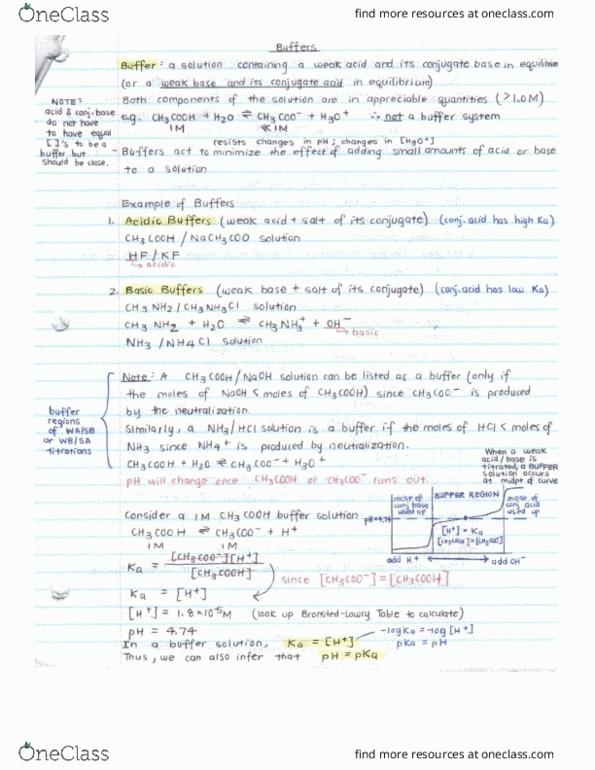 OneClass
find more resources at oneclass.com
Buffers
Buffer: a solution containing a weak acid and its conjugate base in equilibrium
(or a weak base and its conjugate acid in equilibrium)
NOTE:
acid & conj. base
do not have
to have equal
[ ]'s to be a
buffer but
should be close.
Both components of the solution are in appreciable quantities (>1.0M)
e.g. CH3COOH + H2O ⇌ CH3COO⁻ + H3O⁺ ∴ not a buffer system
1M ≪1M
resists changes in pH; changes in [H3O⁺]
- Buffers act to minimize the effect of adding small amounts of acid or base
to a solution
Example of Buffers
1. Acidic Buffers (weak acid + salt of its conjugate) (conj. acid has high Ka)
CH3COOH / NaCH3COO solution
HF / KF
↳ acidic
2. Basic Buffers (weak base + salt of its conjugate) (conj. acid has low Ka)
CH3NH2 / CH3NH3Cl solution
CH3NH2 + H2O ⇌ CH3NH3⁺ + OH⁻
↳ basic
NH3 / NH4Cl solution
buffer
regions
of WA/SB
or WB/SA
titrations
Note: A CH3COOH / NaOH solution can be listed as a buffer (only if
the moles of NaOH < moles of CH3COOH) since CH3COO⁻ is produced
by the neutralization.
Similarly, a NH3/HCl solution is a buffer if the moles of HCl < moles of
NH3 since NH4⁺ is produced by neutralization.
CH3COOH + H2O ⇌ CH3COO⁻ + H3O⁺
pH will change once CH3COOH or CH3COO⁻ runs out.
When a weak
acid/base is
titrated, a BUFFER
solution occurs
at midpt of curve
most of
conj base
used up
BUFFER REGION
most of
conj acid
used up
pH=4.74
[H⁺] = Ka
[CH3COOH]=[CH3COO⁻]
add H⁺
add OH⁻
Consider a 1M CH3COOH buffer solution
CH3COOH ⇌ CH3COO⁻ + H⁺
1M 1M
Ka = [CH3COO⁻][H⁺]
[CH3COOH]
since [CH3COO⁻] = [CH3COOH]
Ka = [H⁺]
[H⁺] = 1.8×10⁻⁵M (look up Bronsted-Lowry Table to calculate)
pH = 4.74
In a buffer solution, Ka = [H⁺]
-logKa = -log[H⁺]
pKa = pH
Thus, we can also infer that pH = pKa
OneClass
find more resources at oneclass.com